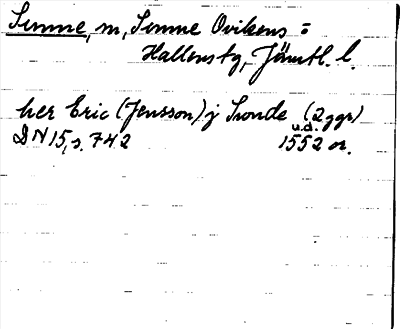 Sunne, m, Sunne Ovikens =
Hallens tg, Jämtl. l.
her Eric (Jensson) j Swnde (2 ggr)
u.d.
DN 15, s. 742 1552 or.